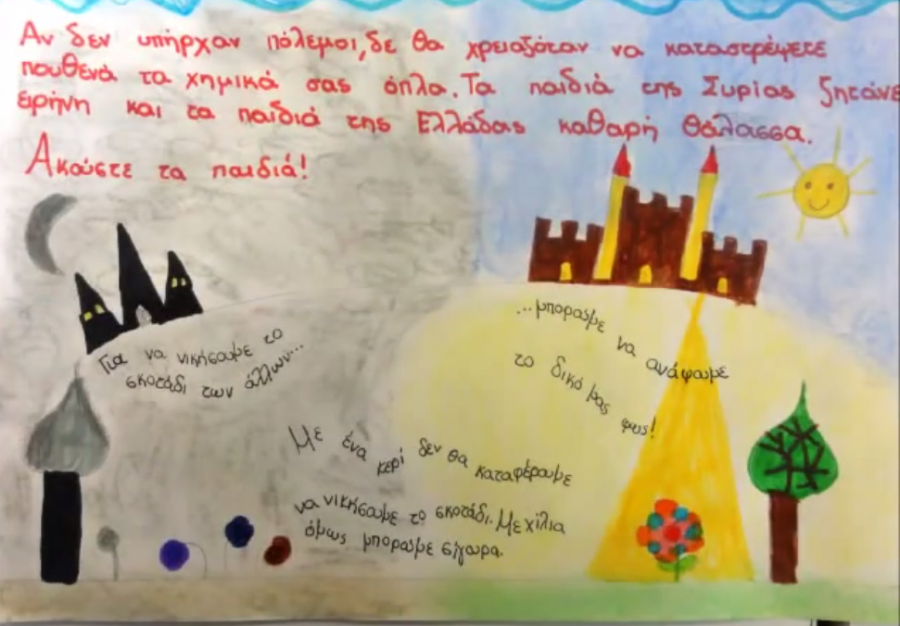 Αν δεν υπήρχαν πόλεμοι, δε θα χρειαζόταν να καταστρέψετε
πουθενά τα χημικά σας όπλα. Τα παιδιά της Συρίας ζητάνε
ερήνη και τα παιδιά της Ελλάδας καθαρή θάλασσα.
Ακούστε τα παιδιά!
Για να νικήσουμε το
σκοτάδι των άλλων...
...μπορούμε να ανάψουμε
το δικό μας φως!
Με ένα κερί δεν θα καταφέρουμε
να νικήσουμε το σκοτάδι. Με χίλια
όμως μπορούμε σίγουρα.